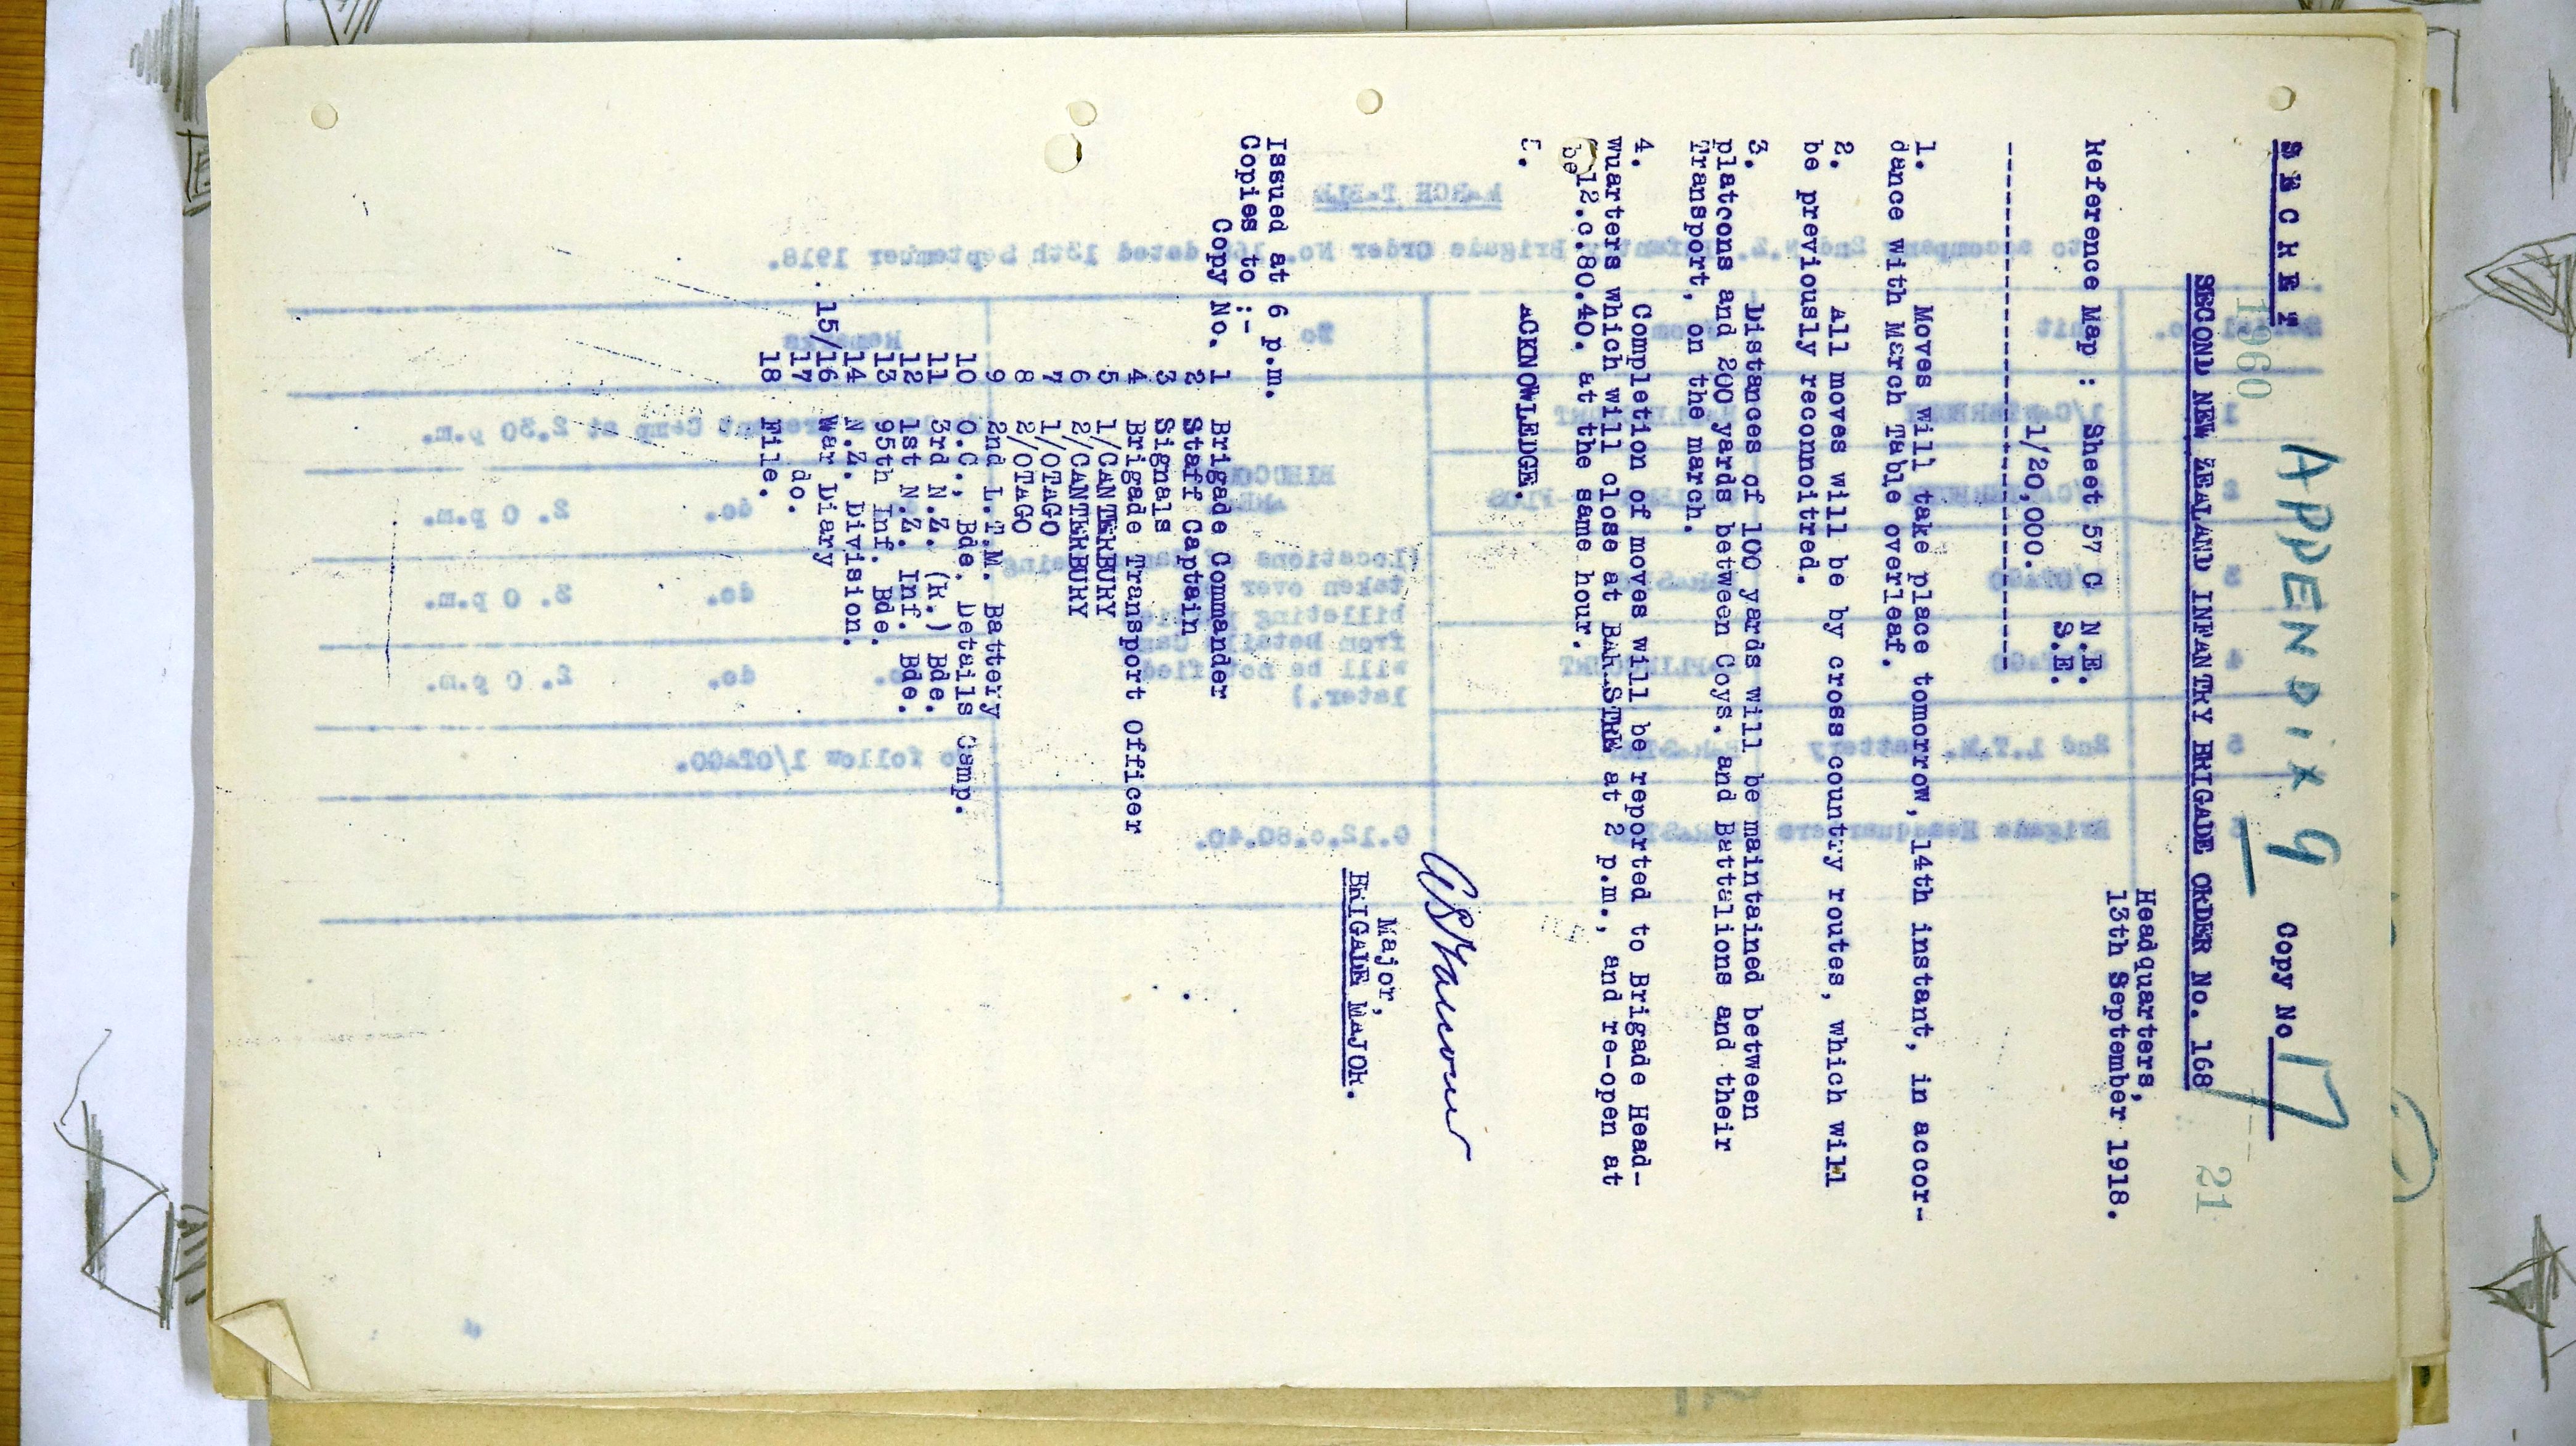 APPENDIX 9
S E C R E T
Copy No 17
1960
SECOND NEW ZEALAND INFANTRY BRIGADE ORDER No. 168
21
Headquarters,
13th September 1918.
Reference Map : Sheet 57 C N.E.
S.E.
1/20,000.
1. Moves will take place tomorrow, 14th instant, in accor-
dance with March Table overleaf.
2. All moves will be by cross country routes, which will
be previously reconnoitred.
3. Distances of 100 yards will be maintained between
platoons and 200 yards between Coys. and Battalions and their
Transport, on the march.
4. Completion of moves will be reported to Brigade Head-
quarters which will close at BARASTRE at 2 p.m., and re-open at
12.c.80.40. at the same hour.
be
5. ACKNOWLEDGE.
Major,
BRIGADE MAJOR.
Issued at 6 p.m.
Copies to :-
Copy No. 1 Brigade Commander
2 Staff Captain
3 Signals
4 Brigade Transport Officer
5 1/CANTERBURY
6 2/CANTERBURY
7 1/OTAGO
8 2/OTAGO
9 2nd L.T.M. Battery
10 O.C., Bde. Details Camp.
11 3rd N.Z. (R.) Bde.
12 1st N.Z. Inf. Bde.
13 95th Inf. Bde.
14 N.Z. Division.
15/16 War Diary
17 do.
18 File.